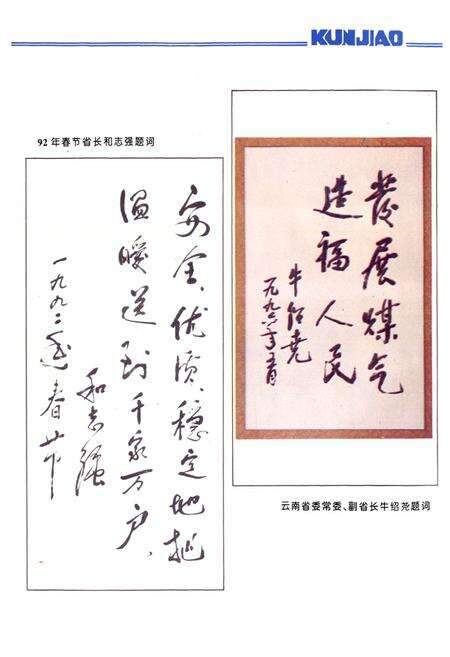 KUNJIAO
92年春节省长和志强题词
安全、优质、稳定地把
温暖送到千家万户、
和志强
一九九二年春节
发展煤气
造福人民
牛绍尧
一九九六年五月
云南省委常委、副省长牛绍尧题词